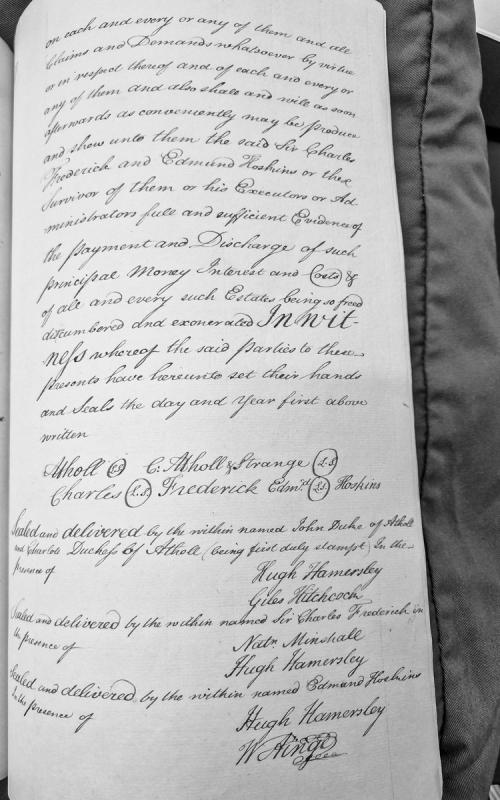 on each and every or any of them and all
Claims and Demands whatsoever by virtue
or in respect thereof and of each and every or
any of them and also shall and will as soon
afterwards as conveniently may be produce
and shew unto them the said Sir Charles
Frederick and Edmund Hoskins or the
Survivor of them or his Executors or Ad
ministrators full and sufficient Evidence of
the payment and Discharge of such
principal Money Interest and Costs &
of all and every such Estates being so freed
discumbered and exonerated In Wit-
ness whereof the said parties to these
presents have hereunto set their hands
and Seals the day and Year first above
written
Atholl L.S. C. Atholl & Strange L.S.
Charles L.S. Frederick Edmd. L.S. Hoskins
Sealed and delivered by the within named John Duke of Atholl
and Charlote Duchess of Atholl (being first duly stampt) In the
presence of
Hugh Hamersley
Giles Hitchcock
Sealed and delivered by the within named Sir Charles Frederick in
the presence of
Natn. Minshall
Hugh Hamersley
Sealed and delivered by the within named Edmund Hoskins
In the presence of
Hugh Hamersley
W